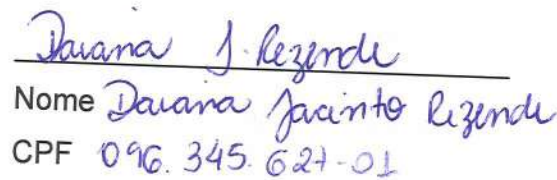 Daiana J. Rezende
Nome Daiana Jacinto Rezende
CPF 096.345.627-01